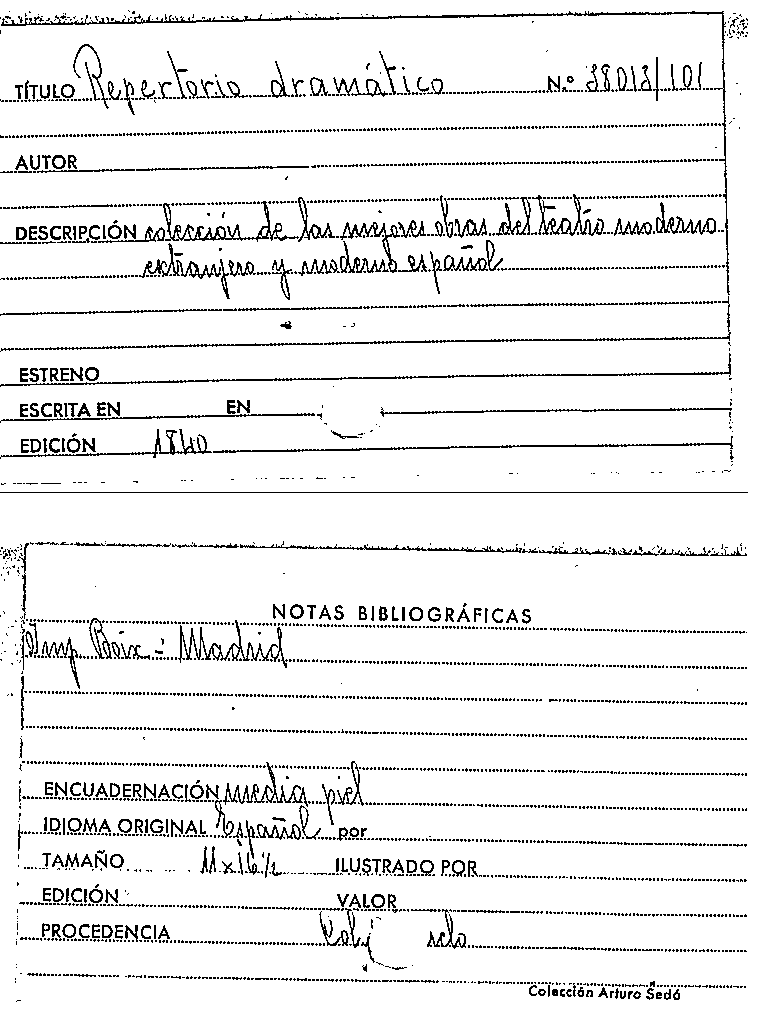 TÍTULO Repertorio dramático N.º 38013/101
AUTOR
DESCRIPCIÓN colección de las mejores obras del teatro moderno
extranjero y moderno español
ESTRENO
ESCRITA EN EN
EDICIÓN 1840
NOTAS BIBLIOGRÁFICAS
Imp Boix - Madrid
ENCUADERNACIÓN media piel
IDIOMA ORIGINAL Español por
TAMAÑO 11x16½ ILUSTRADO POR
EDICIÓN VALOR
PROCEDENCIA
Colección Arturo Sedó